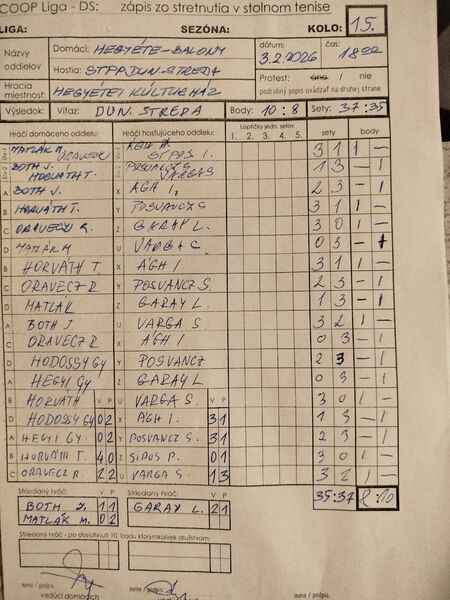 COOP Liga - DS: zápis zo stretnutia v stolnom tenise
LIGA: SEZÓNA: KOLO: 15.
Názvy oddielov Domáci: HEGYÉTE-BALONY dátum: 3.2.2026 čas: 18 00
Hostia: STPP DUN. STREDA Protest: áno / nie
Hracia miestnosť HEGYÉTEI KULTÚRHÁZ podrobný popis uvádzať na druhej strane
Výsledok: Víťaz: DUN. STREDA Body: 10:8 Sety: 37:35
Hráči domáceho oddielu: Hráči hosťujúceho oddielu: Loptičky jedn. setov 1. 2. 3. 4. 5. sety body
MATLÁK M. ORAVECZ AGH 3 1 1 -
BOTH J. HORVÁTH T. POSVANCZ S VARGA S 1 3 - 1
A BOTH J. X AGH I. 2 3 - 1
B HORVÁTH T. Y POSVANCZ S 3 1 1 -
C ORAVECZ R. Z GARAY L. 3 0 1 -
D MATLÁK M U VARGA S 0 3 - 1
B HORVÁTH T. X ÁGH I. 3 1 1 -
C ORAVECZ R Y POSVANCZ S. 2 3 - 1
D MATLÁK Z GARAY L 1 3 - 1
A BOTH J U VARGA S 3 2 1 -
C ORAVECZ R X ÁGH I. 0 3 - 1
D HODOSSY GY Y POSVANCZ 2 3 - 1
A HEGYI GY Z GARAY L 0 3 - 1
B HORVÁTH V P U VARGA S. V P 3 0 1 -
D HODOSSY GY 0 2 X ÁGH I. 3 1 1 3 - 1
A HEGYI GY. 0 2 Y POSVANCZ S. 3 1 2 3 - 1
B HORVÁTH T. 4 0 Z SIPOS P. 0 1 3 0 1 -
C ORAVECZ R. 2 2 U VARGA S. 1 3 3 2 1 -
Striedaný hráč: V P Striedaný hráč: V P 35:37 8:10
BOTH J. 1 1 GARAY L. 2 1
MATLÁK M. 0 2
Striedaný hráč - po dosiahnutí 10. bodu ktorýmkoľvek družstvom:
meno / podpis meno / podpis
vedúci domácich